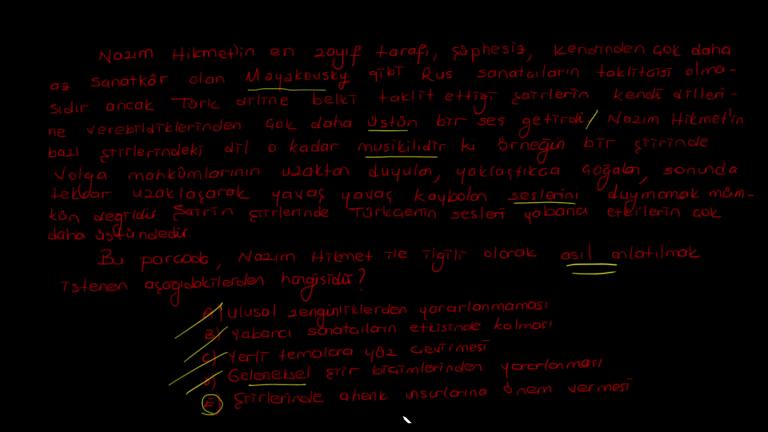 Nazım Hikmet'in en zayıf tarafı, şüphesiz, kendinden çok daha
az sanatkâr olan Mayakovsky gibi Rus sanatçıların taklitçisi olma-
sıdır ancak Türk diline belki taklit ettiği şairlerin kendi dilleri-
ne verebildiklerinden çok daha üstün bir ses getirdi / Nazım Hikmet'in
bazı şiirlerindeki dil o kadar musikilidir ki örneğin bir şiirinde
Volga mahkûmlarının uzaktan duyulan, yaklaştıkça çoğalan, sonunda
tekrar uzaklaşarak yavaş yavaş kaybolan seslerini duymamak müm-
kün değildir Şairin şiirlerinde Türkçenin sesleri yabancı etkilerin çok
daha üstündedir
Bu parçada, Nazım Hikmet ile ilgili olarak asıl anlatılmak
istenen aşağıdakilerden hangisidir?
A) Ulusal zenginliklerden yararlanmaması
B) Yabancı sanatçıların etkisinde kalması
C) Yerli temalara yüz çevirmesi
D) Geleneksel şiir biçimlerinden yararlanması
E) Şiirlerinde ahenk unsurlarına önem vermesi